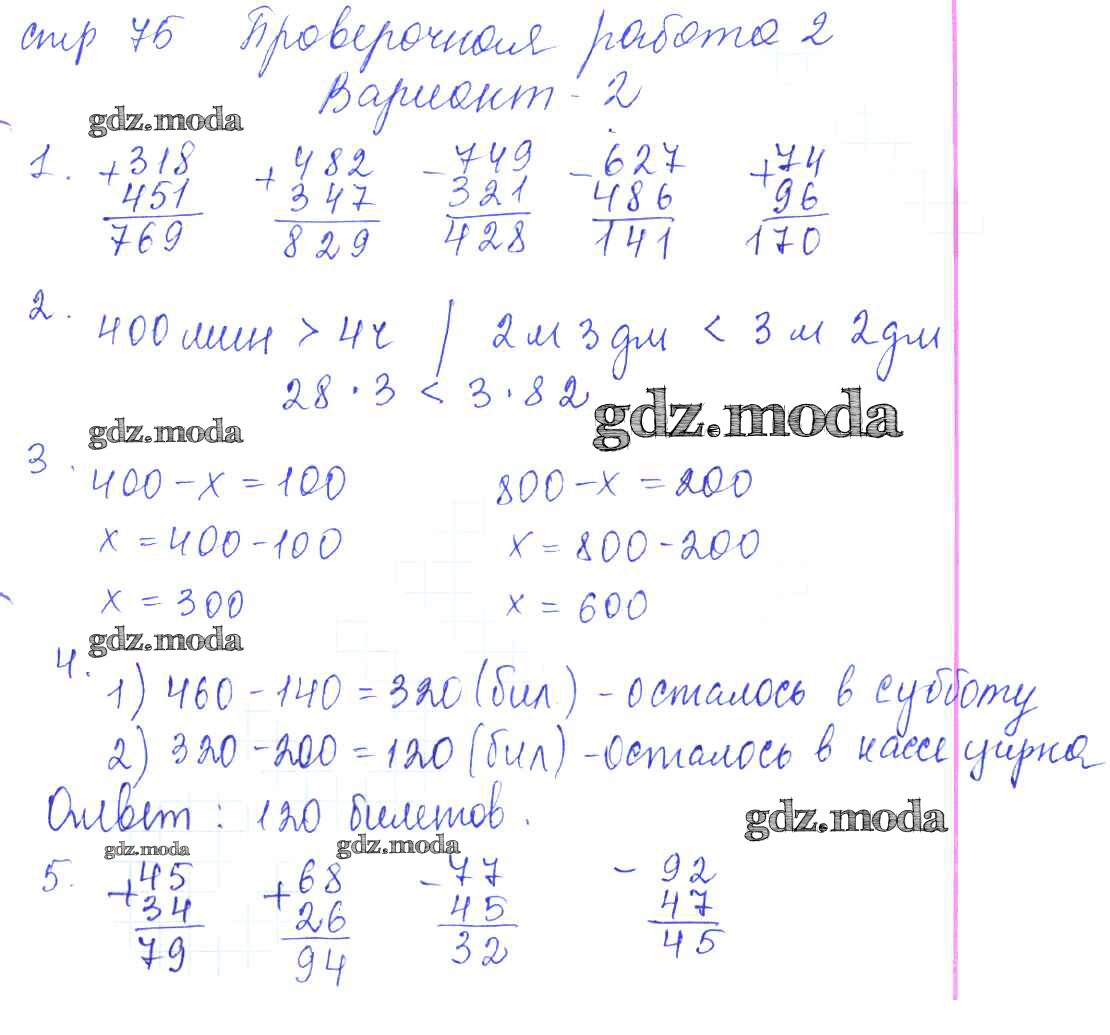 стр 75 Проверочная работа 2
Вариант - 2
gdz.moda
1. +318 +482 -749 -627 +74
451 347 321 486 96
769 829 428 141 170
2. 400 мин > 4ч | 2 м 3 дм < 3 м 2 дм
28 · 3 < 3 · 82
gdz.moda
gdz.moda
3. 400 - x = 100 800 - x = 200
x = 400 - 100 x = 800 - 200
x = 300 x = 600
gdz.moda
4. 1) 460 - 140 = 320 (бил.) - осталось в субботу
2) 320 - 200 = 120 (бил) - осталось в кассе цирка
Ответ : 120 билетов.
gdz.moda
gdz.moda
gdz.moda
5. +45 +68 -77 - 92
34 26 45 47
79 94 32 45